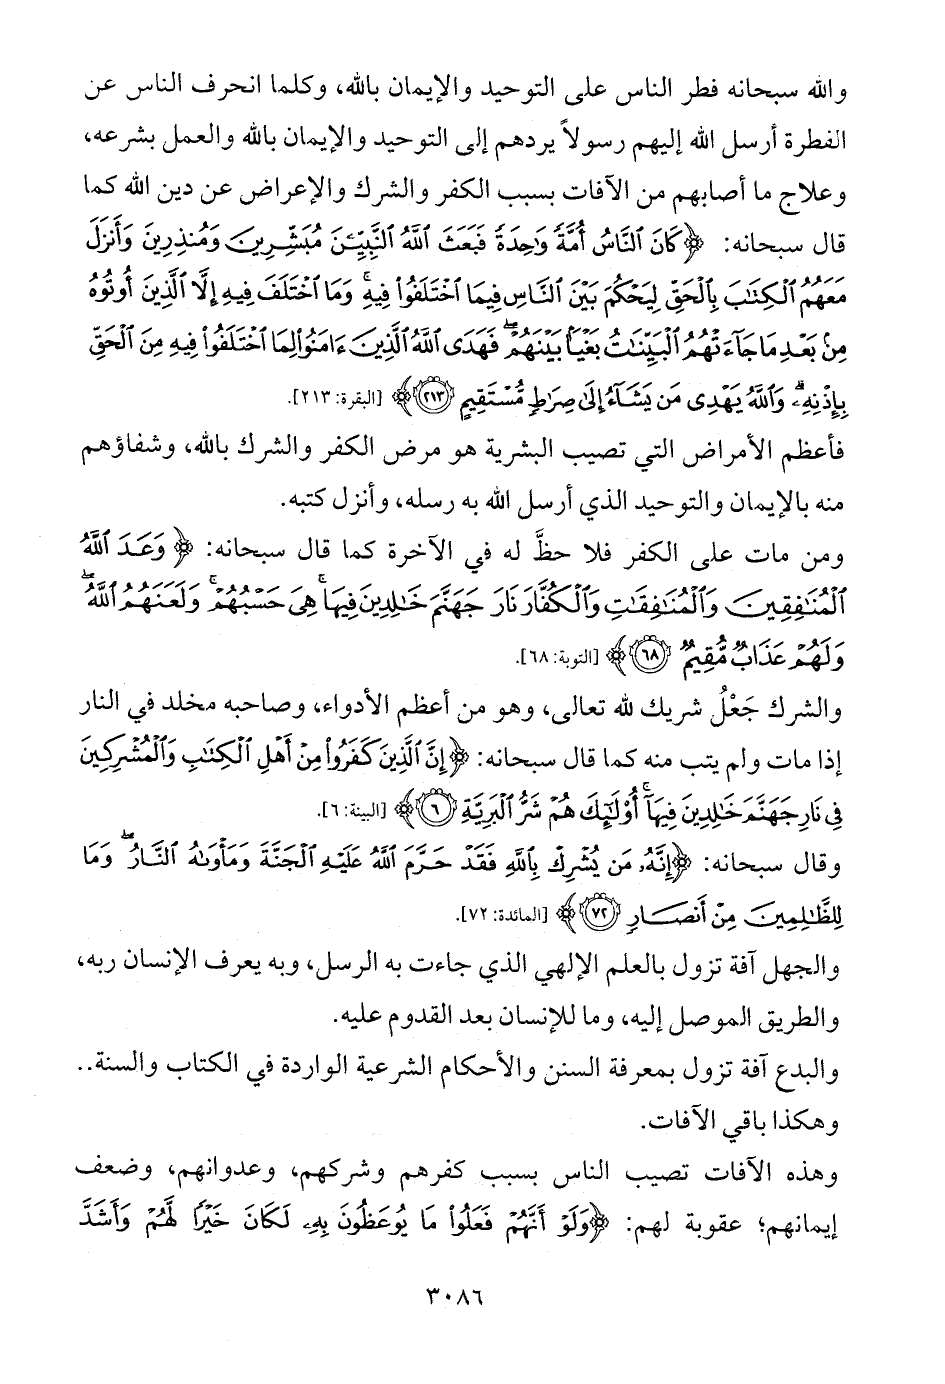 والله سبحانه فطر الناس على التوحيد والإيمان بالله، وكلما انحرف الناس عن
الفطرة أرسل الله إليهم رسولاً يردهم إلى التوحيد والإيمان بالله والعمل بشرعه،
وعلاج ما أصابهم من الآفات بسبب الكفر والشرك والإعراض عن دين الله كما
قال سبحانه: ﴿كَانَ ٱلنَّاسُ أُمَّةً وَٰحِدَةً فَبَعَثَ ٱللَّهُ ٱلنَّبِيِّـۧنَ مُبَشِّرِينَ وَمُنذِرِينَ وَأَنزَلَ
مَعَهُمُ ٱلْكِتَٰبَ بِٱلْحَقِّ لِيَحْكُمَ بَيْنَ ٱلنَّاسِ فِيمَا ٱخْتَلَفُوا۟ فِيهِ ۚ وَمَا ٱخْتَلَفَ فِيهِ إِلَّا ٱلَّذِينَ أُوتُوهُ
مِنۢ بَعْدِ مَا جَآءَتْهُمُ ٱلْبَيِّنَٰتُ بَغْيًۢا بَيْنَهُمْ ۖ فَهَدَى ٱللَّهُ ٱلَّذِينَ ءَامَنُوا۟ لِمَا ٱخْتَلَفُوا۟ فِيهِ مِنَ ٱلْحَقِّ
بِإِذْنِهِۦ ۗ وَٱللَّهُ يَهْدِى مَن يَشَآءُ إِلَىٰ صِرَٰطٍ مُّسْتَقِيمٍ ﴿٢١٣﴾﴾ [البقرة: ٢١٣].
فأعظم الأمراض التي تصيب البشرية هو مرض الكفر والشرك بالله، وشفاؤهم
منه بالإيمان والتوحيد الذي أرسل الله به رسله، وأنزل كتبه.
ومن مات على الكفر فلا حظَّ له في الآخرة كما قال سبحانه: ﴿وَعَدَ ٱللَّهُ
ٱلْمُنَٰفِقِينَ وَٱلْمُنَٰفِقَٰتِ وَٱلْكُفَّارَ نَارَ جَهَنَّمَ خَٰلِدِينَ فِيهَا ۚ هِىَ حَسْبُهُمْ ۚ وَلَعَنَهُمُ ٱللَّهُ ۖ
وَلَهُمْ عَذَابٌ مُّقِيمٌ ﴿٦٨﴾﴾ [التوبة: ٦٨].
والشرك جَعْلُ شريك لله تعالى، وهو من أعظم الأدواء، وصاحبه مخلد في النار
إذا مات ولم يتب منه كما قال سبحانه: ﴿إِنَّ ٱلَّذِينَ كَفَرُوا۟ مِنْ أَهْلِ ٱلْكِتَٰبِ وَٱلْمُشْرِكِينَ
فِى نَارِ جَهَنَّمَ خَٰلِدِينَ فِيهَآ ۚ أُو۟لَٰٓئِكَ هُمْ شَرُّ ٱلْبَرِيَّةِ ﴿٦﴾﴾ [البينة: ٦].
وقال سبحانه: ﴿إِنَّهُۥ مَن يُشْرِكْ بِٱللَّهِ فَقَدْ حَرَّمَ ٱللَّهُ عَلَيْهِ ٱلْجَنَّةَ وَمَأْوَىٰهُ ٱلنَّارُ ۖ وَمَا
لِلظَّٰلِمِينَ مِنْ أَنصَارٍ ﴿٧٢﴾﴾ [المائدة: ٧٢].
والجهل آفة تزول بالعلم الإلهي الذي جاءت به الرسل، وبه يعرف الإنسان ربه،
والطريق الموصل إليه، وما للإنسان بعد القدوم عليه.
والبدع آفة تزول بمعرفة السنن والأحكام الشرعية الواردة في الكتاب والسنة..
وهكذا باقي الآفات.
وهذه الآفات تصيب الناس بسبب كفرهم وشركهم، وعدوانهم، وضعف
إيمانهم؛ عقوبة لهم: ﴿وَلَوْ أَنَّهُمْ فَعَلُوا۟ مَا يُوعَظُونَ بِهِۦ لَكَانَ خَيْرًا لَّهُمْ وَأَشَدَّ
٣٠٨٦